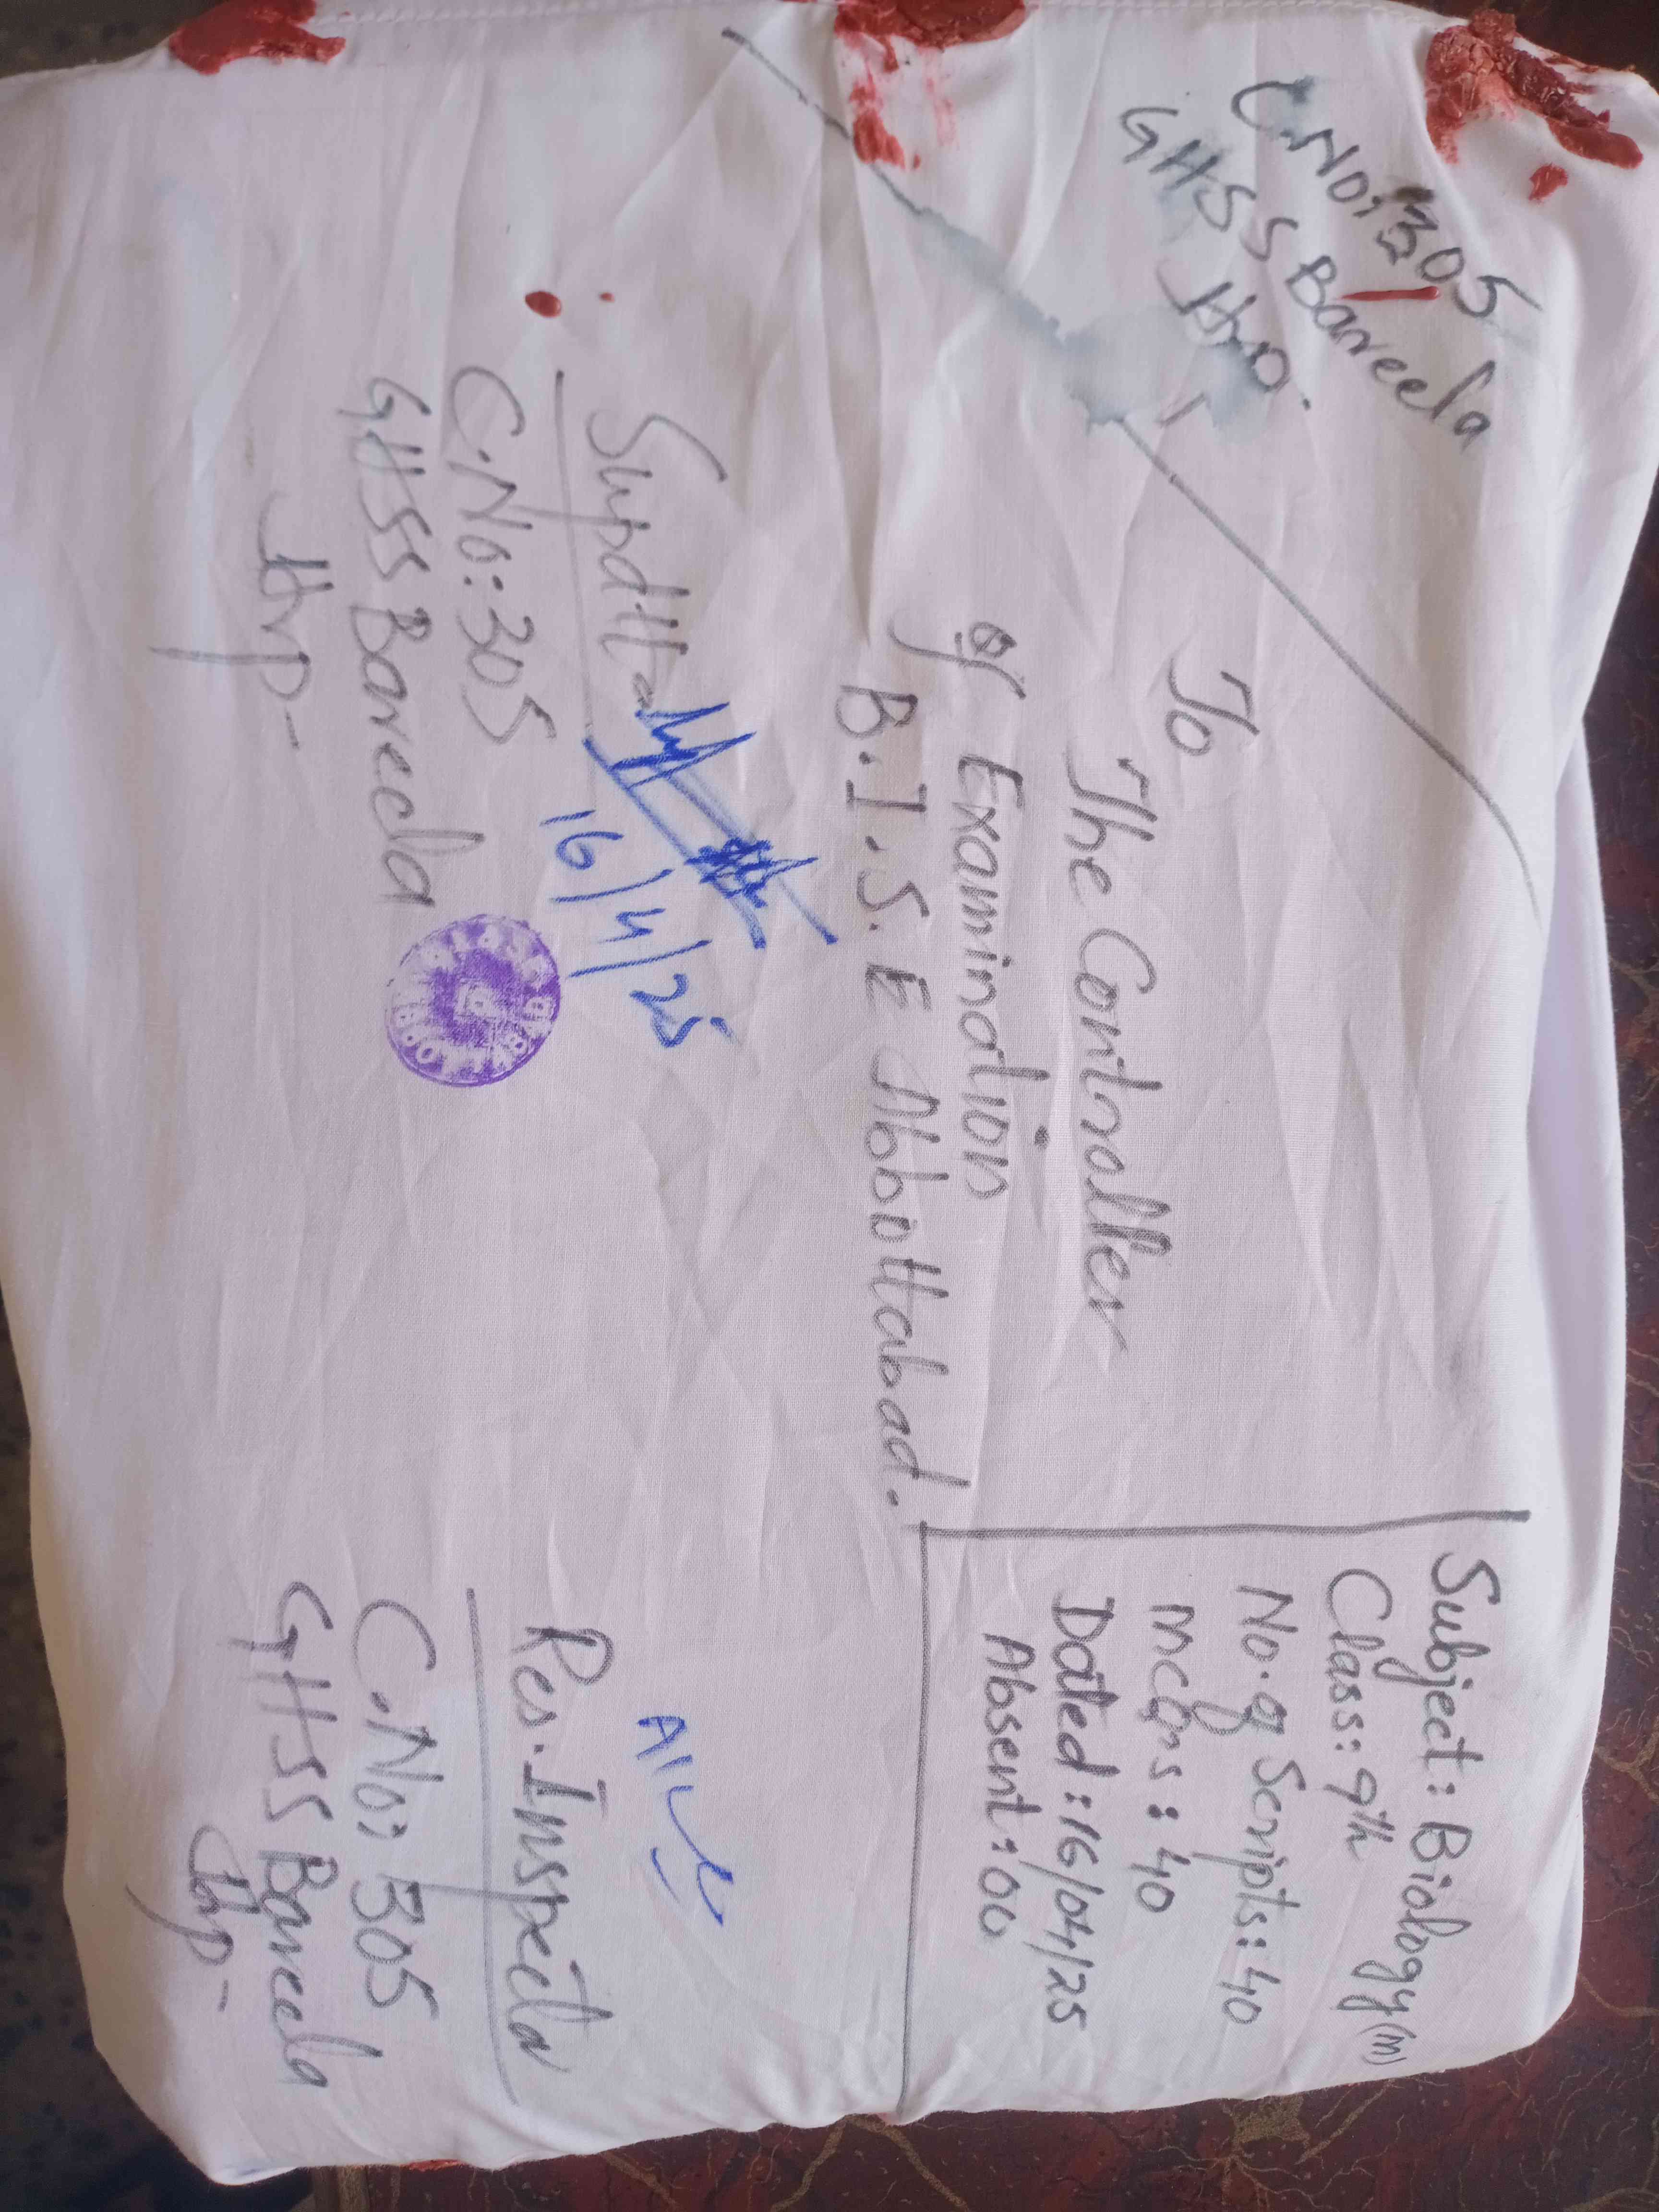 C.No: 305
GHSS Bareela
Hrp.
Subject: Biology (m)
Class: 9th
No. of Scripts: 40
mcqns: 40
Dated: 16/04/25
Absent: 00
To
The Controller
of Examination
B.I.S.E Abbottabad.
Supdtt
16/4/25
C.No: 305
GHSS Bareela
Hrp-
Res. Inspector
C.No: 305
GHSS Bareela
Hrp-